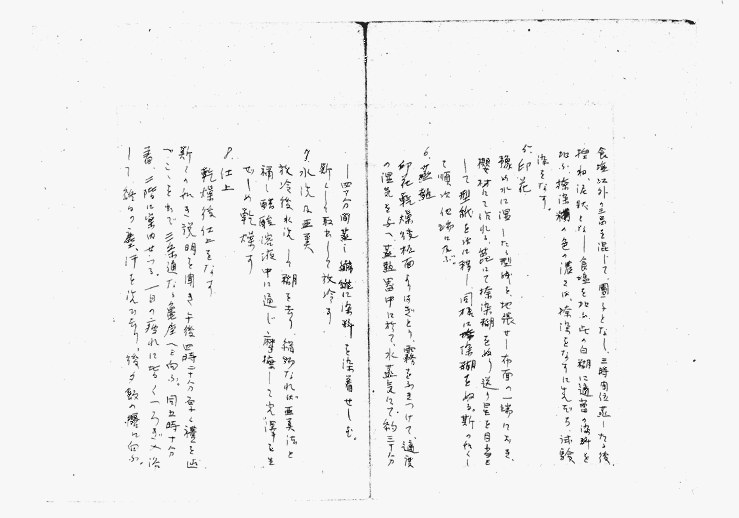 食塩以外の三品を混じて、團子となし、三時間位蒸したる後
捏和、泥状となし食塩を加ふ此の白糊に適当の染料を
加ふ捺染糊の色の濃さは、捺染をなすに先だち、試験
染をなす。
5. 印花
豫め水に湿したる型紙を地張せし布面の一端におき
櫻材にて作れる箆にて捺染糊をぬり送り星を目当と
して型紙を次に移し同様に捺染糊をぬる。斯の如くし
て順次他端に及ぶ
6. 蒸熱
印花乾燥後板面よりはぎとり、霧をふきつけて、適度
の湿気を与へ蒸熱器中に於て、水蒸気にて約三十分
―四十分間蒸し繊維に染料を染着せしむ。
斯くして取出して放冷す。
7. 水洗及亜麦
放冷後水洗して糊を去り 絹物なれば
糊し醋酸溶液中に通し 摩擦して光澤を生
ぜしめ乾燥す
8. 仕上
乾燥後仕上をなす
斯くの如き説明を聞き午後四時二十分厚く禮を述
べこゝを出で三条通なる亀屋へと向ふ。同五時十分
着 二階に案内せらる。一日の疲れに皆くつろぎ入浴
して終日の塵汗を洗ひ去り、後夕飯の膳に向ふ。